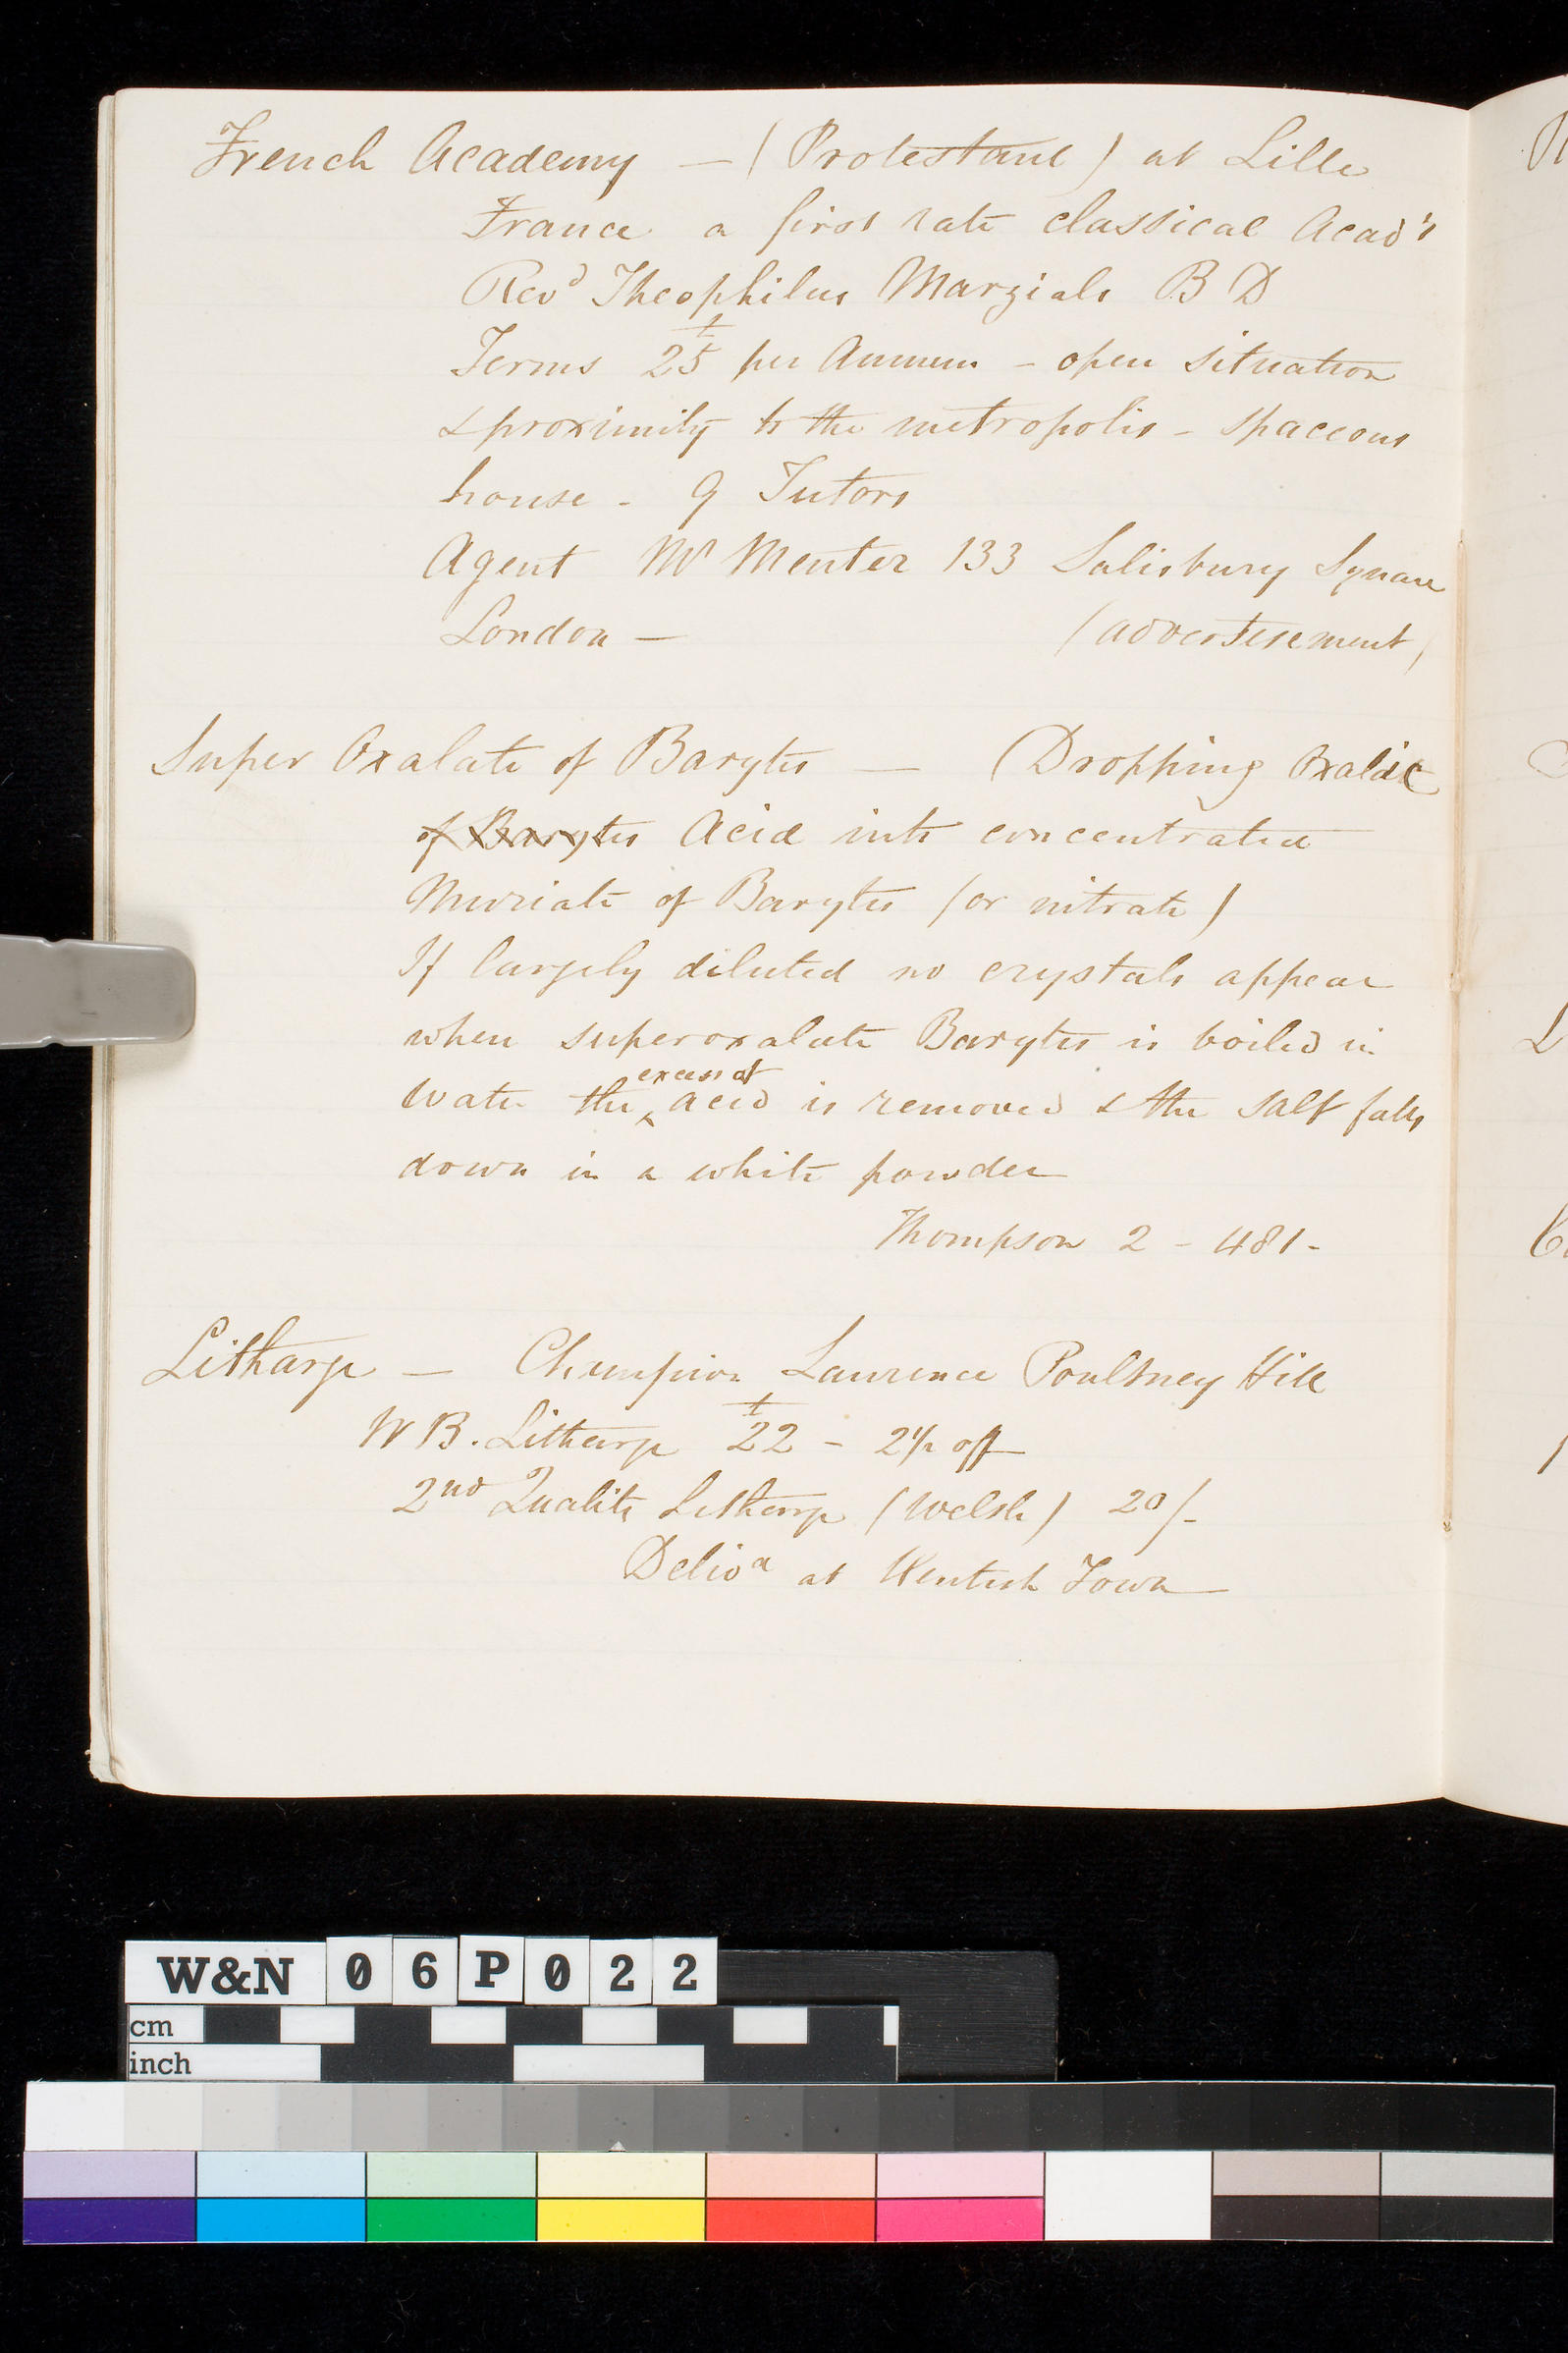 French Academy — (Protestant) at Lille
France a first rate classical Acad'y
Revd Theophilus Marzials B D
Terms £25 per Annum - open situation
& proximity to the metropolis - spaceous
house - 9 Tutors
Agent Mr Menter 133 Salisbury Square
London — (advertisement)
Super Oxalate of Barytes — (Dropping Oxalic
of Barytes Acid into concentrated
Muriate of Barytes (or nitrate)
If largely diluted no crystals appear
when superoxalate Barytes is boiled in
excess of
water the acid is removed & the salt falls
down in a white powder
Thompson 2 - 481 -
Litharge — Champion Laurence Poultney Hill
W B. Litharge £22 - 2½ off
2nd Quality Litharge (Welsh) 20/-
Delivd at Kentish Town
W&N 06P022
cm
inch